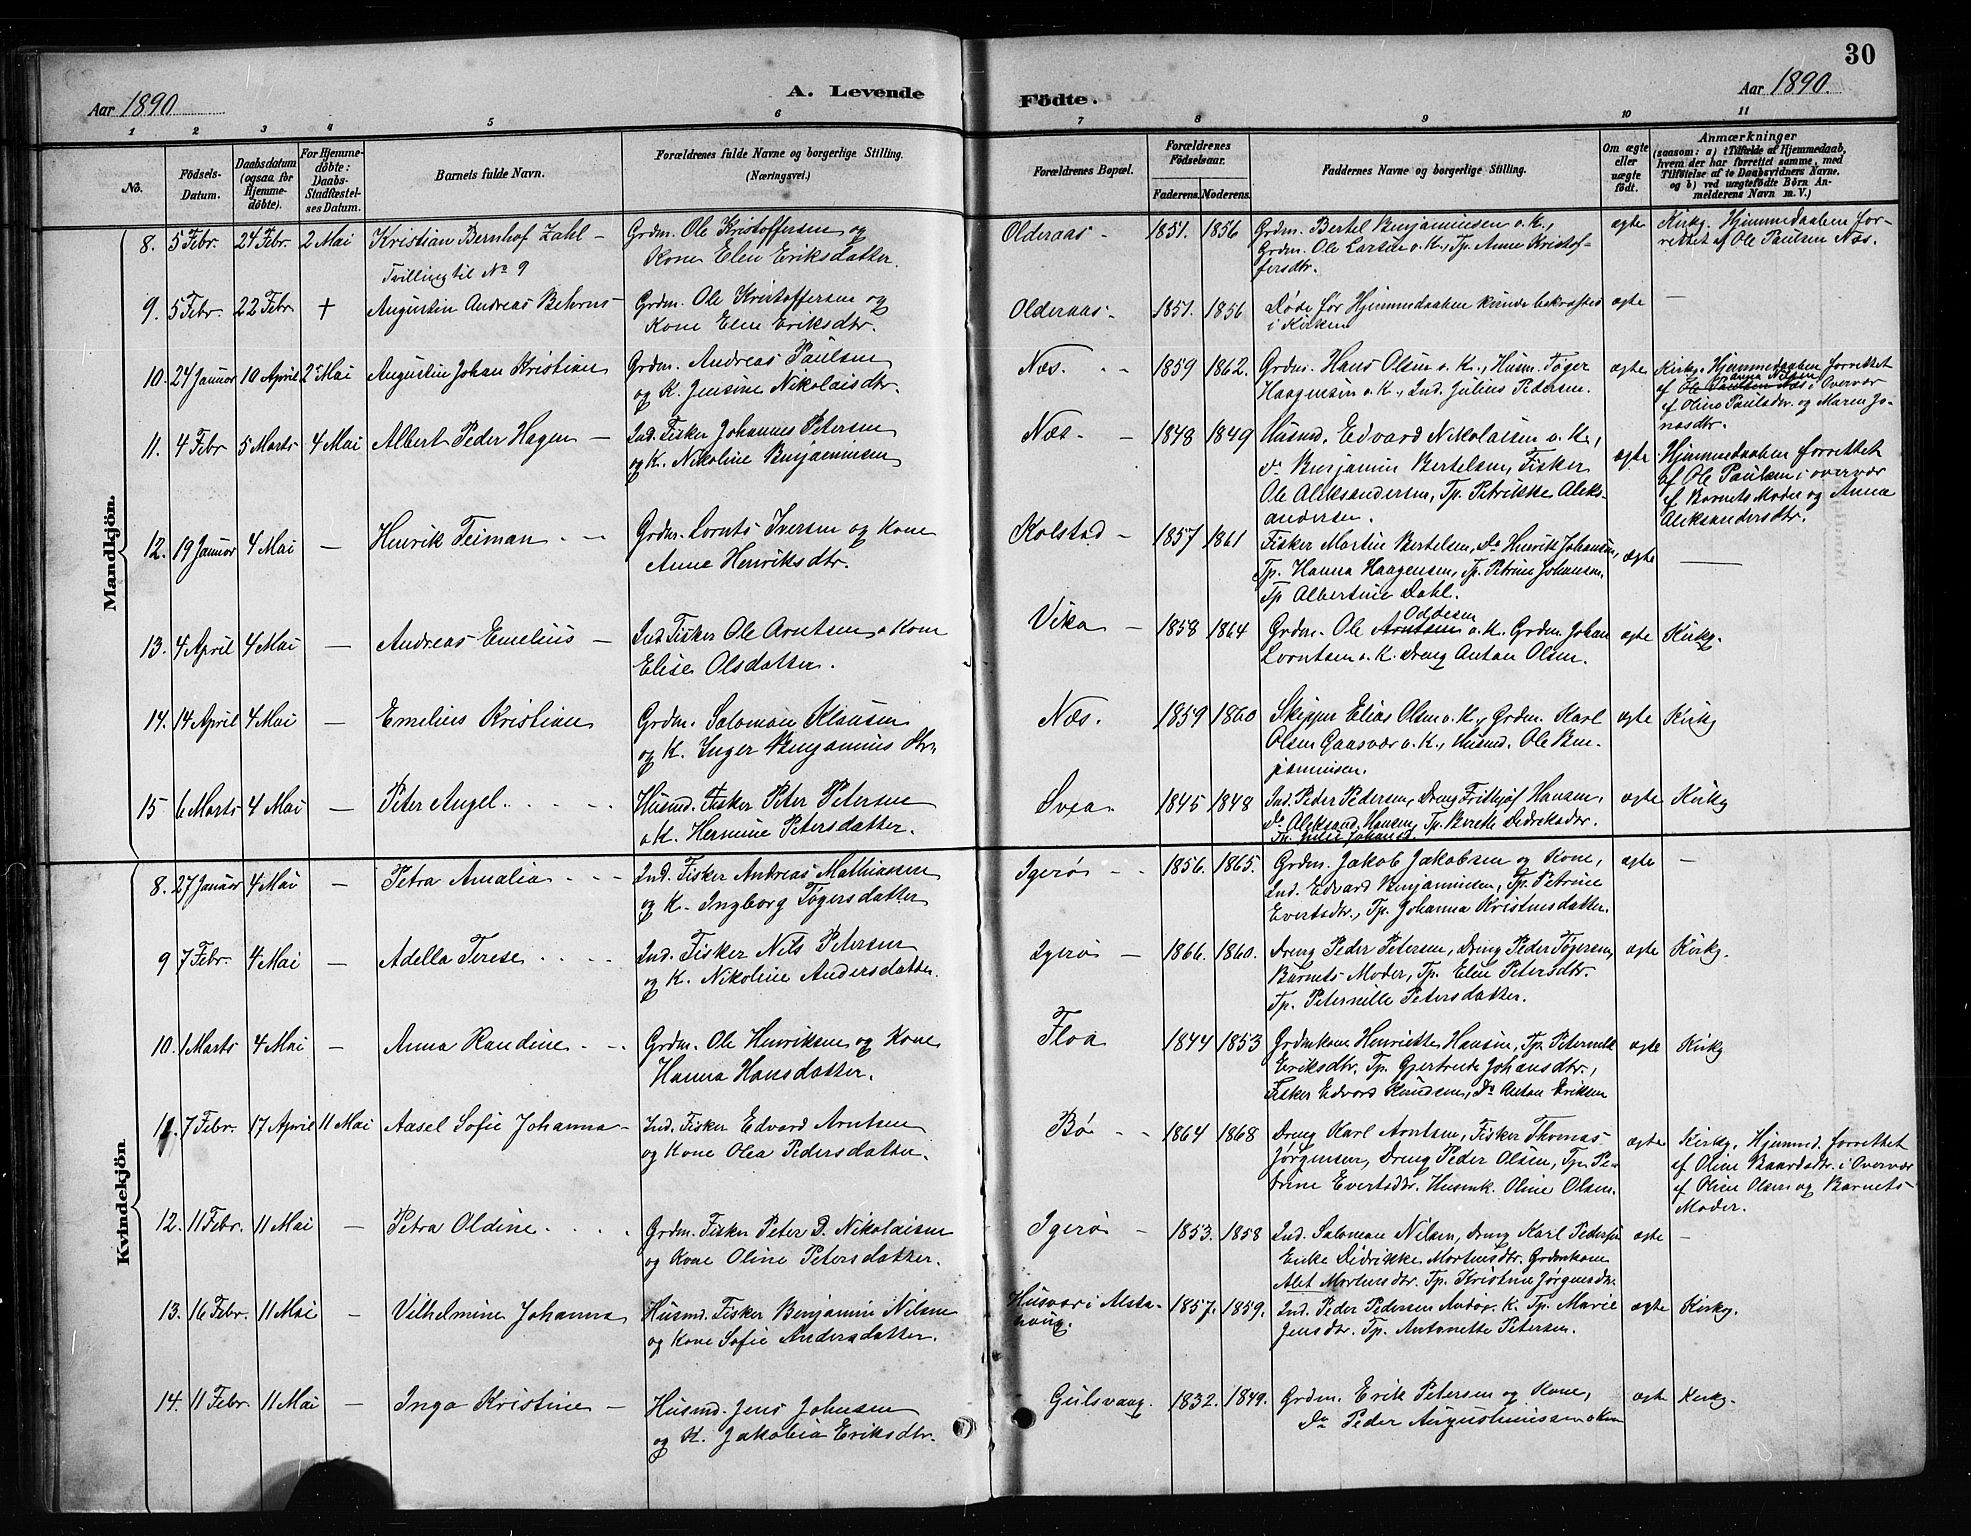 30
Aar 1890
A. Levende
Födte.
Aar 1890.
1 2 3 4 5 6 7 8 9 10 11
No.
Födsels-Datum.
Daabsdatum (ogsaa for Hjemme-döbte).
For Hjemme-döbte: Daabs-Stadfæstel-ses Datum.
Barnets fulde Navn.
Forældrenes fulde Navne og borgerlige Stilling. (Næringsvei.)
Forældrenes Bopæl.
Forældrenes Födselsaar.
Faderens. Moderens.
Faddernes Navne og borgerlige Stilling.
Om ægte eller uægte födt.
Anmærkninger
(saasom: a) i Tilfælde af Hjemmedaab, hvem der har forrettet samme, med Tilföielse af to Daabsvidners Navne, og b) ved uægtefödte Börn Anmelderens Navn m. V.)
Mandkjön.
8. 5 Febr. 24 Febr. 2 Mai Kristian Bernhof Zahl - Grdm. Ole Kristoffersen og Olderaas - 1851. 1856 Grdm. Bertel Benjaminsen o. K., ægte Kirkg. Hjemmedaaben for-
Tvilling til No 9 Kone Elen Eriksdatter. Grdm. Ole Larsen o. K., Tp. Anne Kristof- rettet af Ole Paulsen Næs.
fersdtr.
9. 5 Febr. 22 Febr + Augustin Andreas Behrns - Grdm. Ole Kristoffersen og Olderaas - 1851. 1856 Døde før Hjemmedaaben kunde bekræftes ægte —
Kone Elen Eriksdtr. i Kirken
10. 24 Januar 10 April 2 Mai Augustin Johan Kristian Grdm. Andreas Paulsen Næs. - - 1859 1862. Grdm. Hans Olsen o. K., Husm. Tøger ægte Kirkg. Hjemmedaaben forrettet
og K. Jensine Nikolaisdtr. Haagensen o. K., Ind. Julius Pedersen. af Ole Paulsen Næs i Overvær
af Oline Paulsdtr. og Maren Jo-
nasdtr.
11. 4 Febr 5 Marts 4 Mai Albert Peder Hagen - Ind. Fisker Johannes Petersen Næs. - 1848 1849 Husmd. Edvard Nikolaisen o. K., ægte Hjemmedaaben forrettet
og K. Nikoline Benjaminsen Do Benjamin Bertelsen, Fisker af Ole Paulsen i overvær
Ole Aleksandersen, Tp. Petrikke Aleks- af Barnets Moder og Anna
andersen. Aleksandersdtr.
12. 19 Januar 4 Mai — Henrik Teiman - - Grdm. Lornts Iversen og Kone Kolstad - 1857 1861 Fisker Martin Bertelsen, Do Henrik Johansen, ægte —
Anne Henriksdtr. Tp. Hanna Haagensen, Tp. Petrine Johansen,
Tp Albertine Dahl.
13. 4 April 4 Mai — Andreas Emelius - Ind. Fisker Ole Arntsen o Kone Vika - 1858 1864 Grdm. Ole Arntsen Oldesen o. K. Grdm. Johan ægte Kirkg.
Elise Olsdatter. Lorntsen o. K. Dreng Anton Olsen.
14. 14 April 4 Mai — Emelius Kristian Grdm. Salomon Klausen Næs. 1859 1860 Skipper Elias Olsen o. K., Grdm. Karl ægte Kirkg
og K. Inger Benjamins dtr. Olsen Gaasvær o. K., Husmd. Ole Ben-
jaminsen.
15 6 Marts 4 Mai — Peter Angel. Husmd. Fisker Peter Petersen Svea. 1845 1848 Ind. Peder Pedersen, Dreng Fridtjof Hansen, ægte Kirkg
o K. Hermine Petersdatter. Do Aleksand. Hansen, Tp. Berette Didriksdtr.
Kvindekjön
8. 27 Januar 4 Mai — Petra Amalia - - - Ind. Fisker Andreas Mathiasen Igerø - - 1856. 1865. Grdm. Jakob Jakobsen og Kone, ægte —
og K. Ingborg Tøgersdatter Ind. Edvard Benjaminsen, Tp. Petrine
Evertsdtr., Tp. Johanna Kristensdatter.
9 7 Febr. 4 Mai — Adella Terese Ind. Fisker Nils Petersen Igerø - 1866. 1860. Dreng Peder Petersen, Dreng Peder Tøgersen, ægte Kirkg.
og K. Nikoline Andersdatter. Barnets Moder, Tp. Eline Petersdtr.
Tp. Peternille Petersdatter.
10. 1 Marts 4 Mai — Anna Randine - - Grdm. Ole Henriksen og Kone Floa 1844 1853 Grdmkone Henriette Hansen, Tp. Peternille ægte Kirkg
Hanna Hansdatter. Eriksdtr. Tp. Gjertrude Johansdtr.,
Fisker Edvard Knudsen, Do Anton Eriksen
11. 7 Febr. 17 April 11 Mai Aasel Sofie Johanna - Ind. Fisker Edvard Arntsen Bø - - 1864 1868 Dreng Karl Arntsen, Fisker Thomas ægte Kirkg. Hjemmed. forrettet
og Kone Olea Pedersdatter. Jørgensen, Dreng Peder Olsen, Tp. Pe- af Oline Baardsdtr. i Overvær
trine Evertsdtr. Husmk. Oline Olsen. af Oline Olsen og Barnets
Moder.
12. 11 Febr. 11 Mai — Petra Oldine Grdm. Fisker Peter D. Nikolaisen Igerø - 1853. 1858 Ind. Salomon Nilsen, Dreng Karl Pedersen ægte —
og Kone Oline Petersdatter. Enke Didrikke Mortensdtr. Grdmkone
Alet Mortensdtr. Tp. Kristine Jørgensdtr.
13. 16 Febr. 11 Mai — Vilhelmine Johanna Husmd. Fisker Benjamin Nilsen Husvær i Alsta- 1857. 1859. Ind. Peder Pedersen Andø o. K. Tp. Marie ægte Kirkg.
og Kone Sofie Andersdatter. houg. Jensdtr. Tp. Antonette Petersen.
14. 11 Febr. 11 Mai — Inga Kristine - Husmd. Jens Johnsen Gulsvaag. 1832. 1849. Grdm. Erik Petersen og Kone, ægte Kirkg.
og K. Jakobia Eriksdtr. Do Peder Augustinussen o Kone